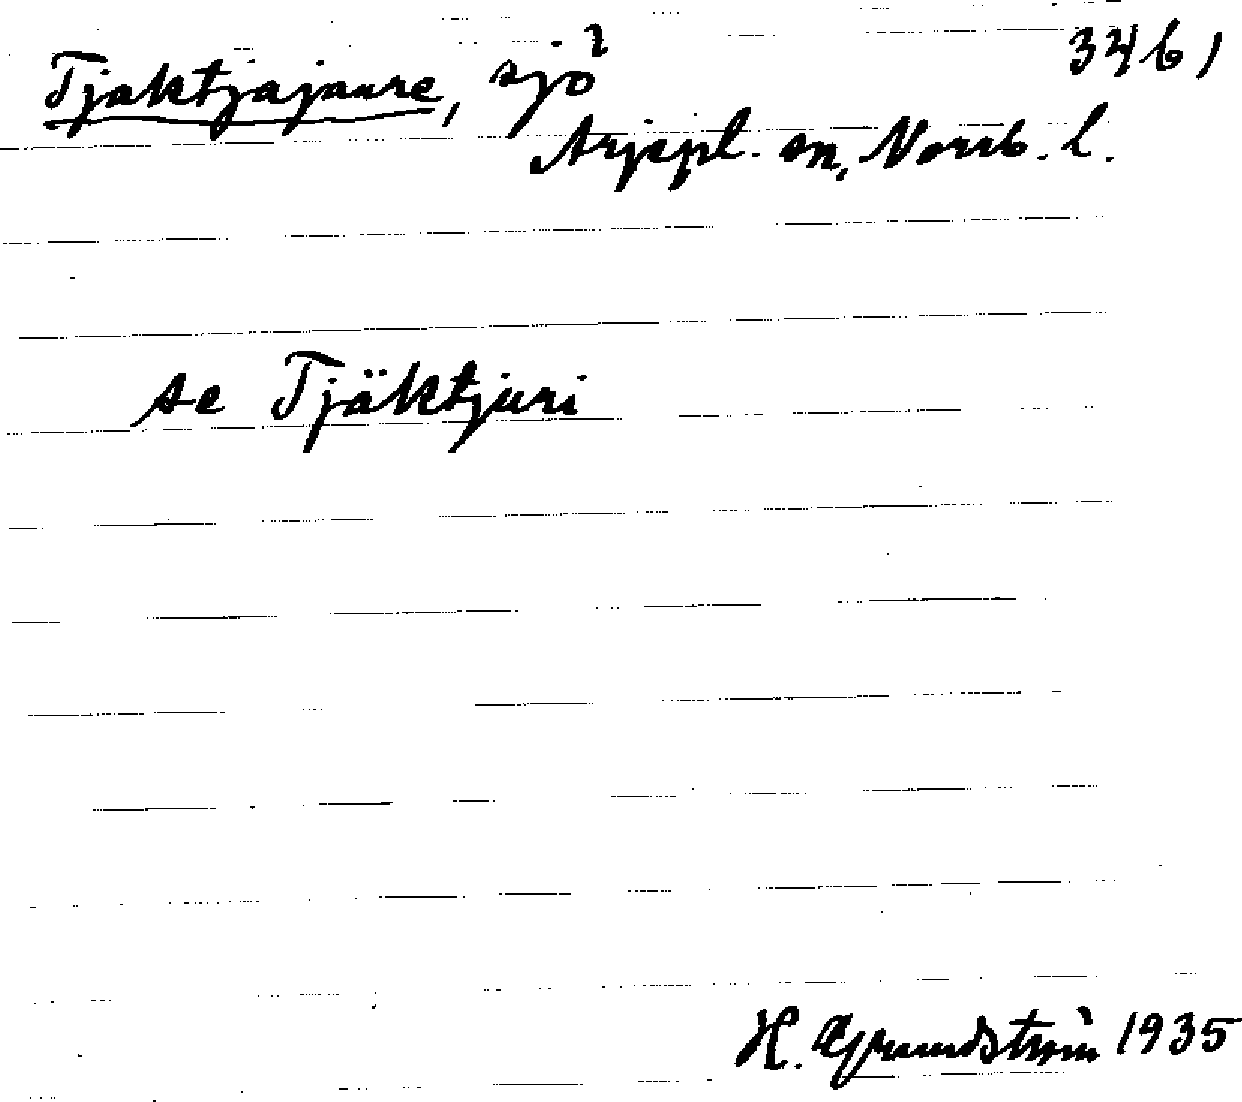 Tjaktjajaure, sjö 3461
Arjepl. sn, Norrb. l.
se Tjäktjuri
H. Grundström 1935